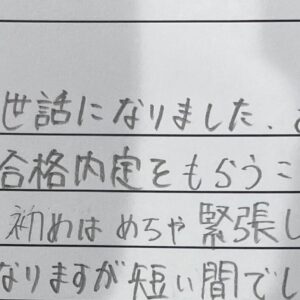 世話になりました.
合格内定をもらうこ
初めはめちゃ緊張し
なりますが短い間でし